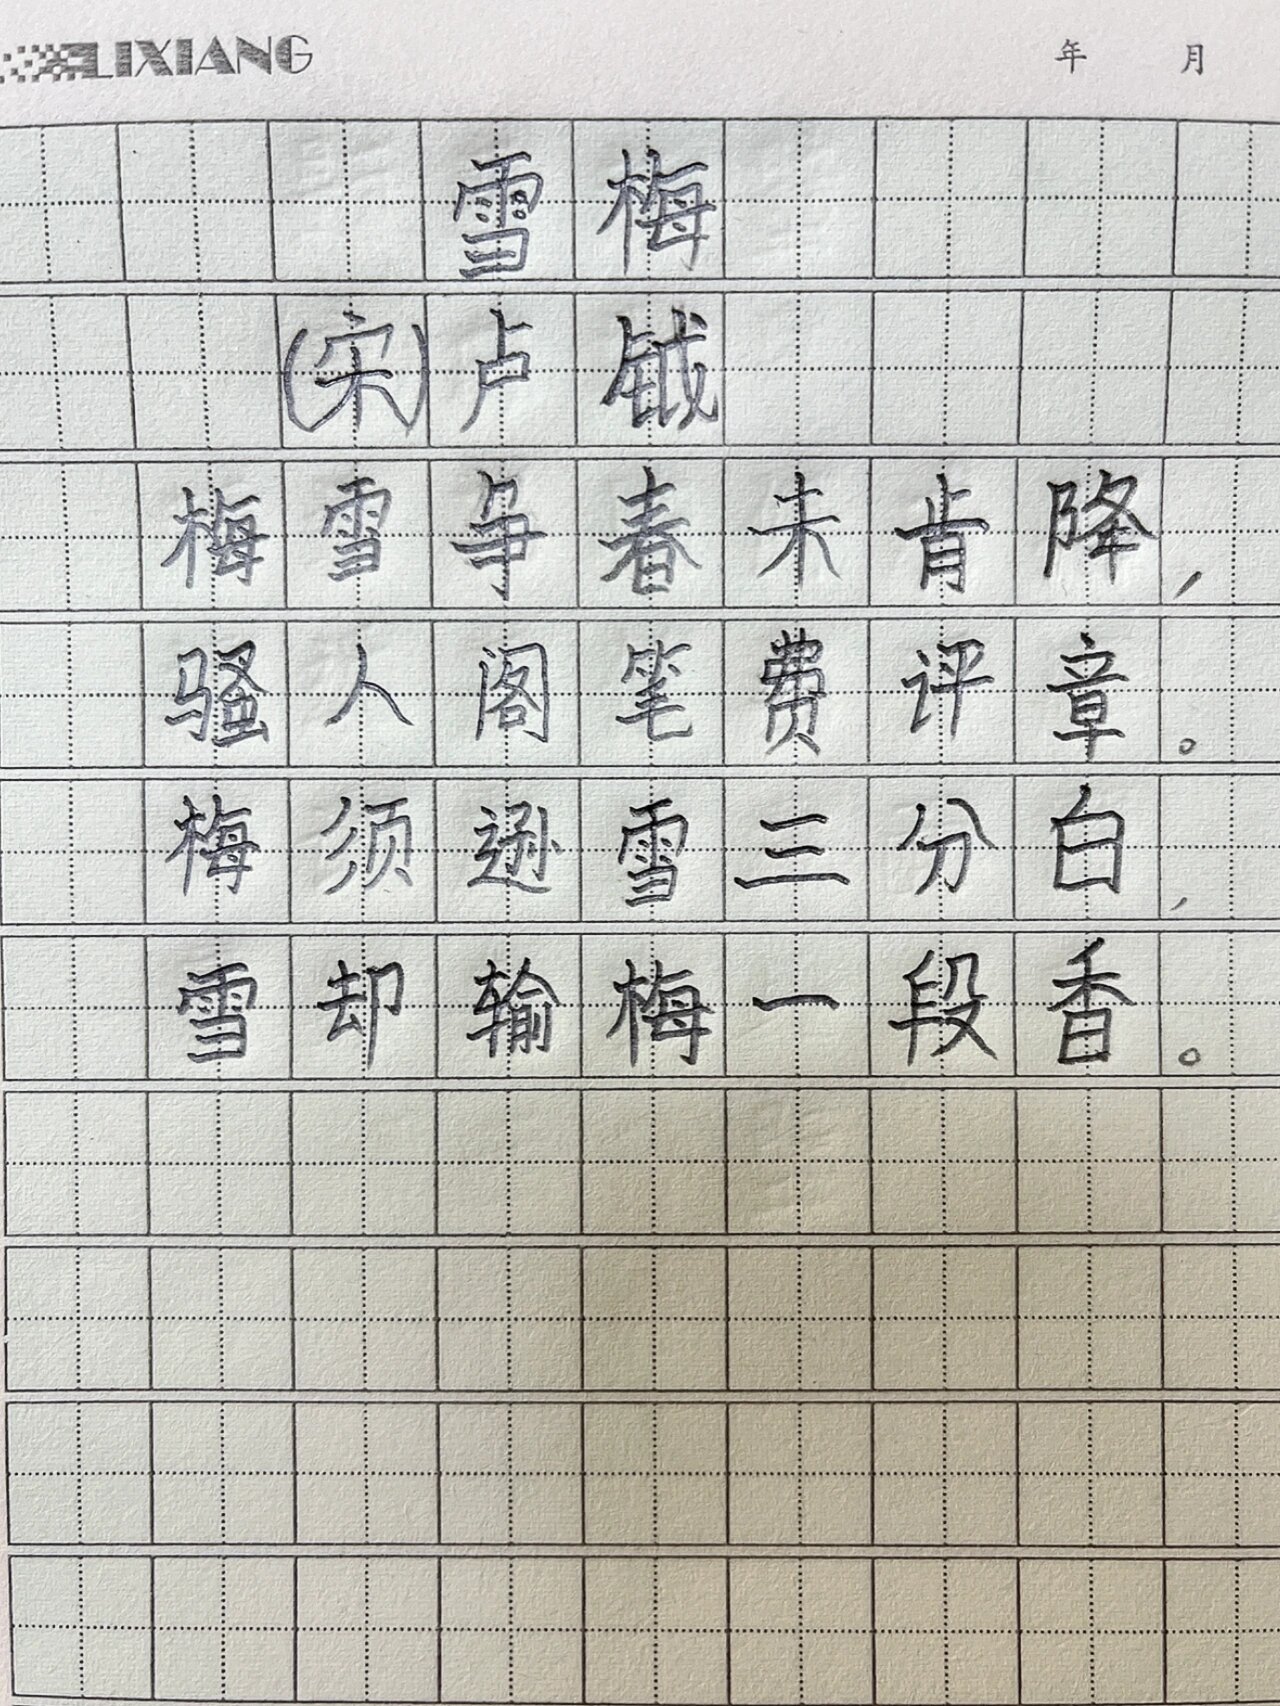 LIXIANG 年 月
雪梅
(宋)卢钺
梅雪争春未肯降,
骚人阁笔费评章。
梅须逊雪三分白,
雪却输梅一段香。